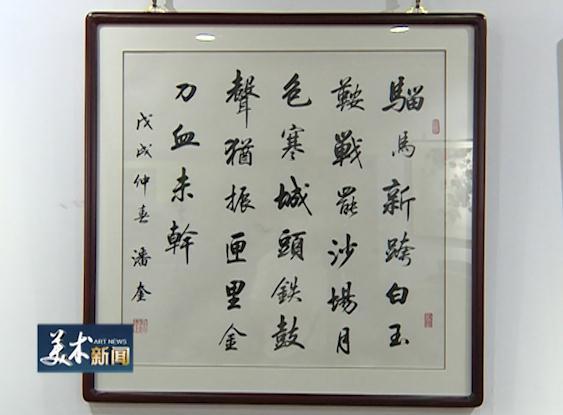 騮馬新跨白玉
鞍戰罷沙場月
色寒城頭鉄鼓
聲猶振匣里金
刀血未幹
戊戌仲春 潘奎
美术新闻
ART NEWS